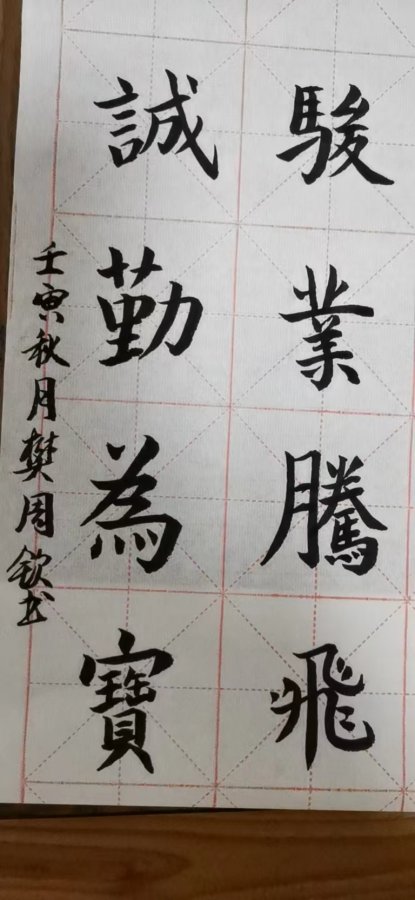 駿業騰飛
誠勤為寶
壬寅秋月樊周欽书